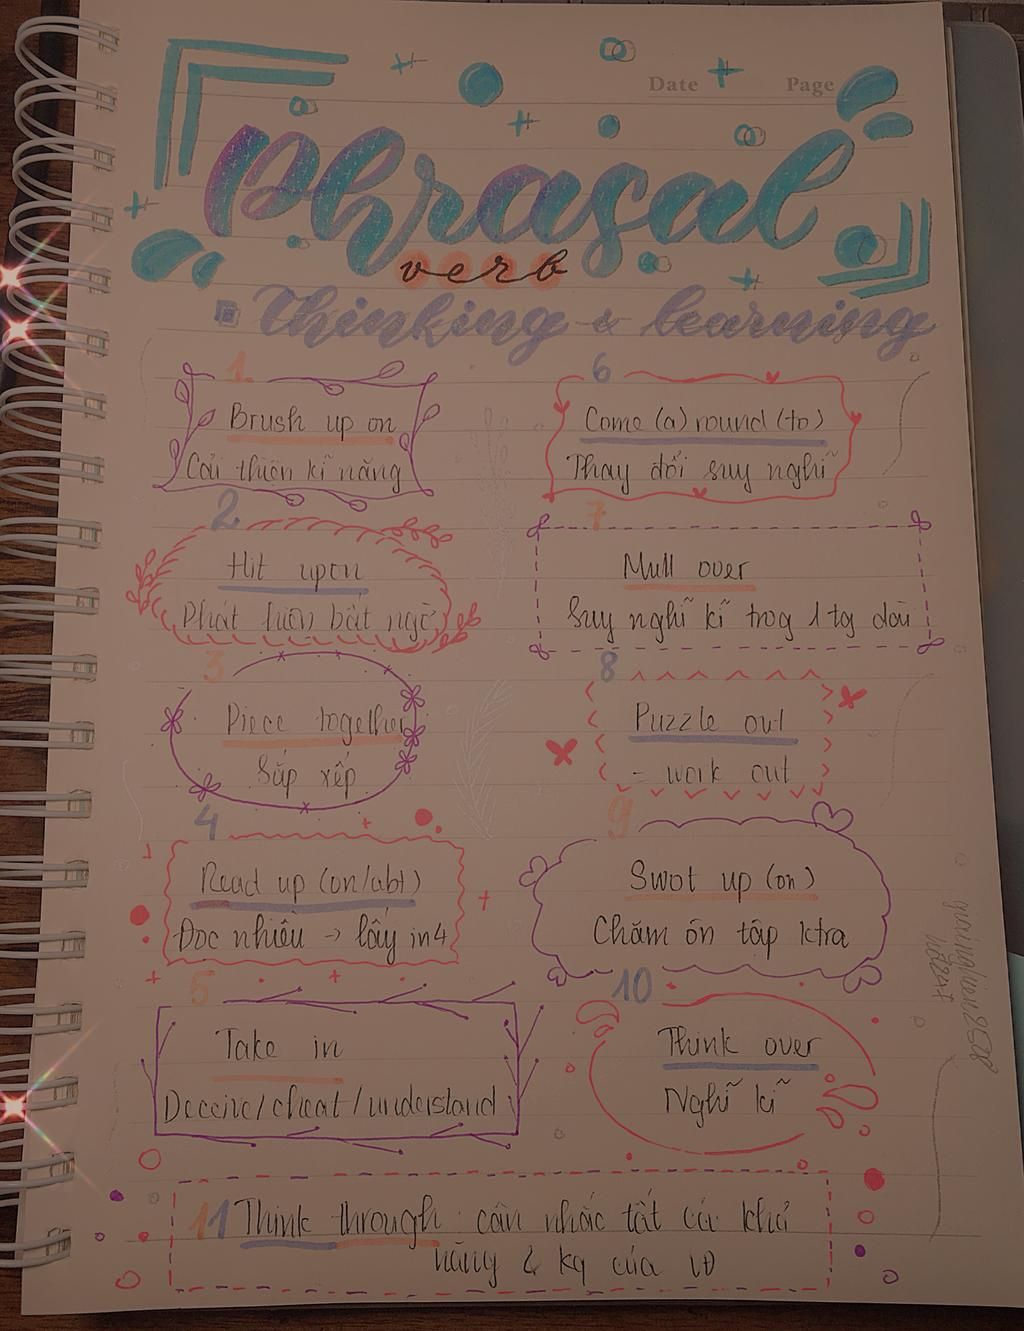 Date Page
Phrasal
verb
Thinking & learning
1
Brush up on
Cải thiện kĩ năng
2
Hit upon
Phát hiện bất ngờ
3
Piece together
Sắp xếp
4
Read up (on/abt)
Đọc nhiều -> lấy in4
5
Take in
Deceive/cheat/understand
6
Come (a) round (to)
Thay đổi suy nghĩ
7
Mull over
Suy nghĩ kĩ trog 1 tg dài
8
Puzzle out
- work out
9
Swot up (on)
Chăm ôn tập ktra
10
Think over
Nghĩ kĩ
11 Think through: cân nhắc tất cả khả
năng & kq của vđ